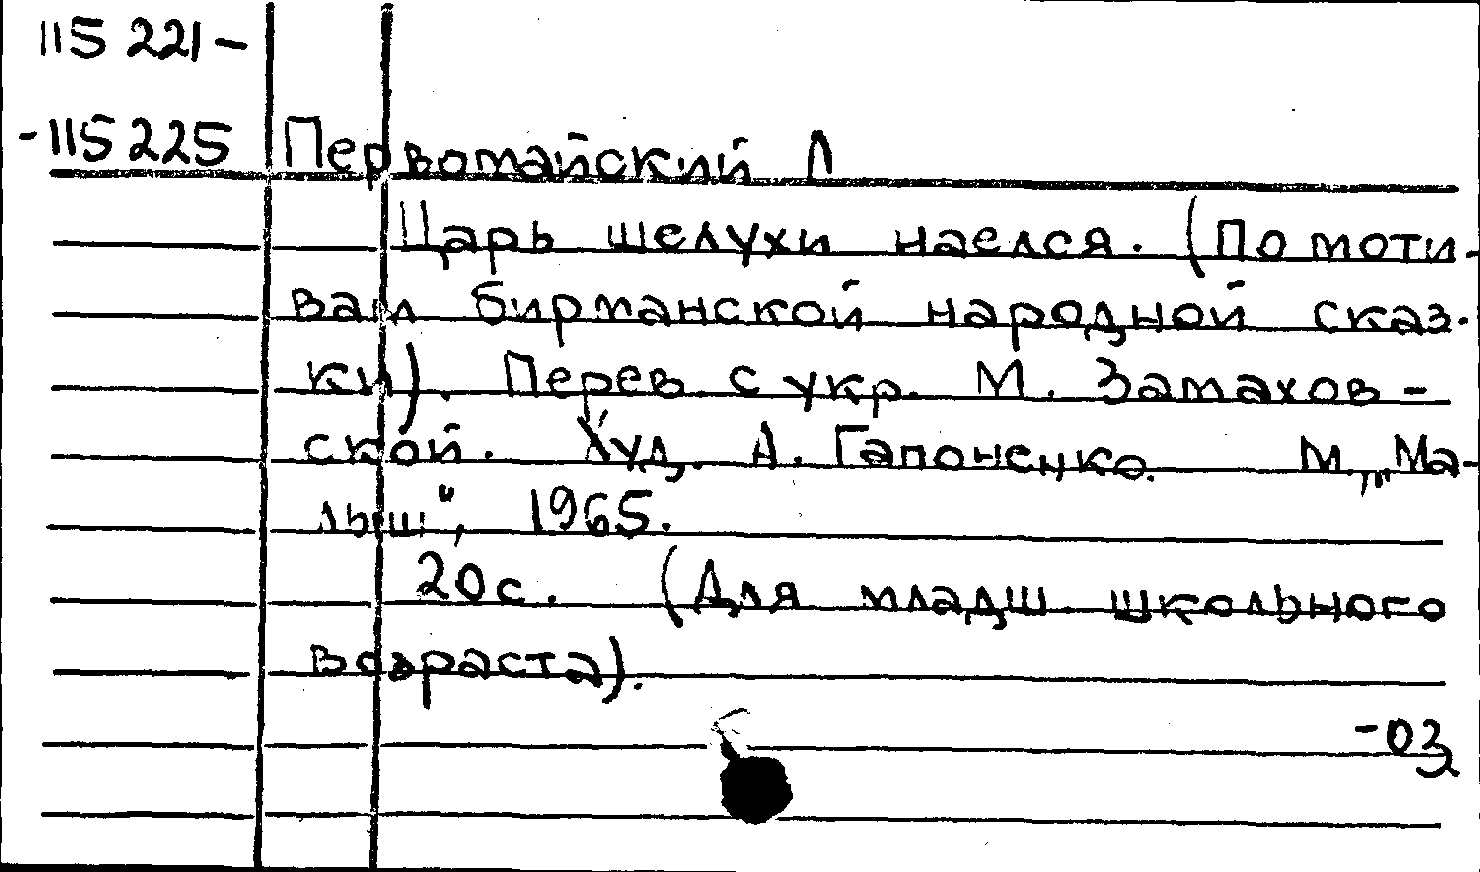 115 221-
-115 225 Первомайский Л
Царь шелухи наелся. (По моти-
вам бирманской народной сказ-
ки). Перев. с укр. М. Замахов-
ской. Худ. А. Гапоненко. М., „Ма-
лыш", 1965.
20с. (Для младш. школьного
возраста).
-03